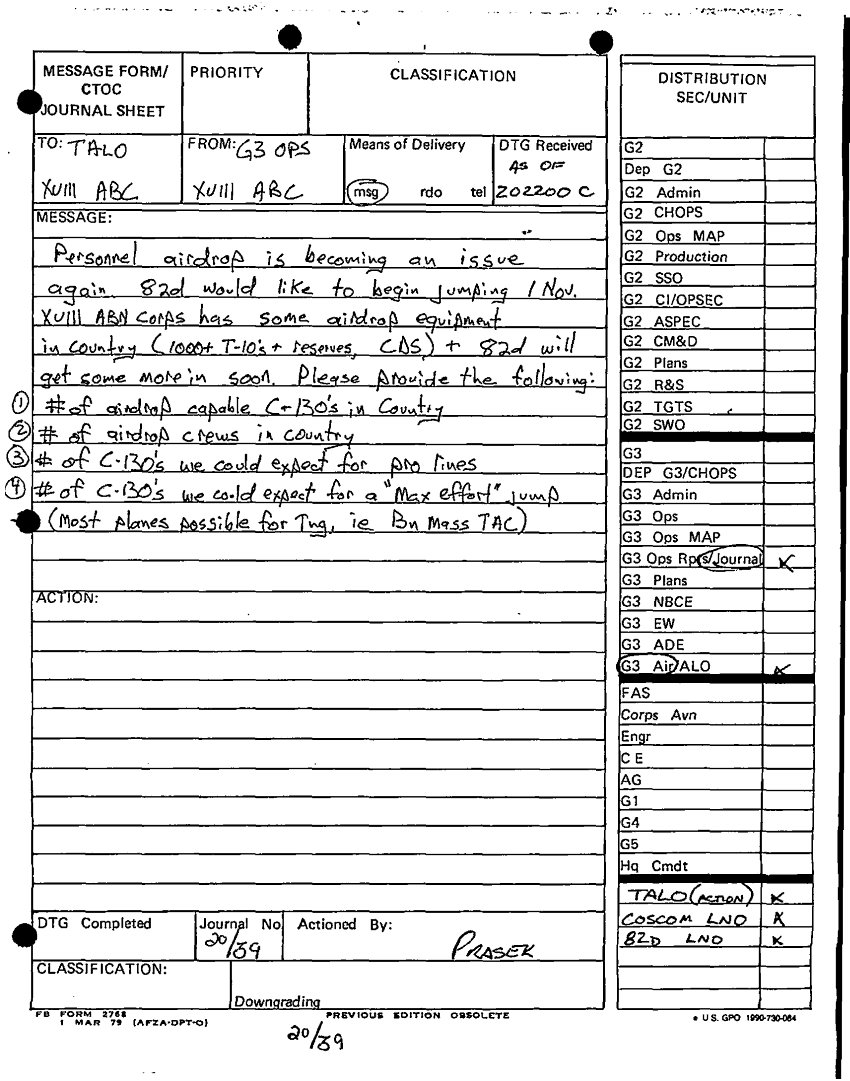 MESSAGE FORM/
CTOC
JOURNAL SHEET
PRIORITY
CLASSIFICATION
TO: TALO
XVIII ABC
FROM: G3 OPS
XVIII ABC
Means of Delivery
msg rdo tel
DTG Received
AS OF
202200 C
MESSAGE:
Personnel airdrop is becoming an issue
again. 82d would like to begin jumping 1 Nov.
XVIII ABN Corps has some airdrop equipment
in country (1000+ T-10's + reserves, CDS) + 82d will
get some more in soon. Please provide the following:
① # of airdrop capable C-130's in Country
② # of airdrop crews in country
③ # of C-130's we could expect for pro lines
④ # of C-130's we could expect for a "Max effort" jump
(Most planes possible for Tng, ie Bn Mass TAC)
ACTION:
DTG Completed
Journal No
20/39
Actioned By:
PRASEK
CLASSIFICATION:
Downgrading
FB FORM 2768
1 MAR 79 (AFZA-DPT-O)
PREVIOUS EDITION OBSOLETE
20/39
DISTRIBUTION
SEC/UNIT
G2
Dep G2
G2 Admin
G2 CHOPS
G2 Ops MAP
G2 Production
G2 SSO
G2 CI/OPSEC
G2 ASPEC
G2 CM&D
G2 Plans
G2 R&S
G2 TGTS
G2 SWO
G3
DEP G3/CHOPS
G3 Admin
G3 Ops
G3 Ops MAP
G3 Ops Rpts/Journal X
G3 Plans
G3 NBCE
G3 EW
G3 ADE
G3 Air/ALO X
FAS
Corps Avn
Engr
C E
AG
G1
G4
G5
Hq Cmdt
TALO (ACTION) X
COSCOM LNO X
82D LNO X
U.S. GPO 1990-730-084